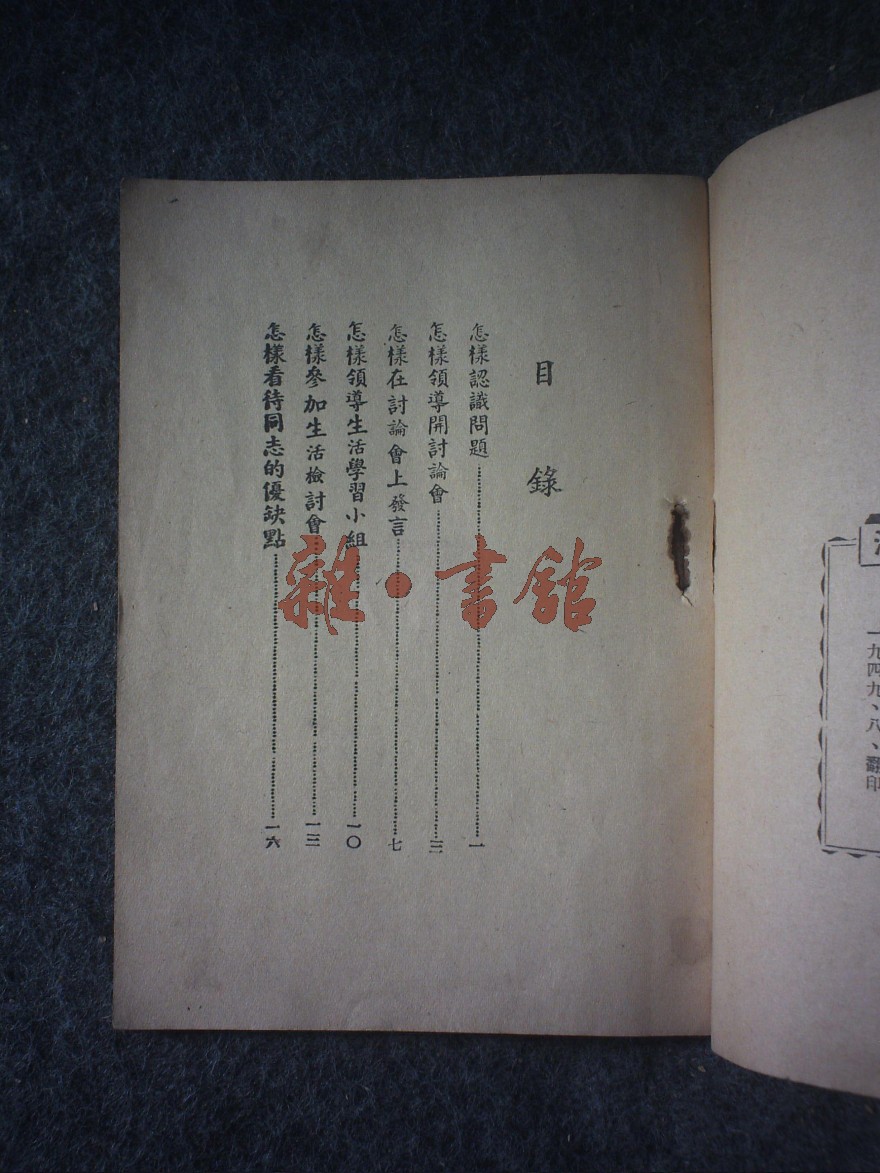 目錄
怎樣認識問題……一
怎樣領導開討論會……三
怎樣在討論會上發言……七
怎樣領導生活學習小組……一〇
怎樣參加生活檢討會……一三
怎樣看待同志的優缺點……一六
雜·書館
一九四九、八、翻印